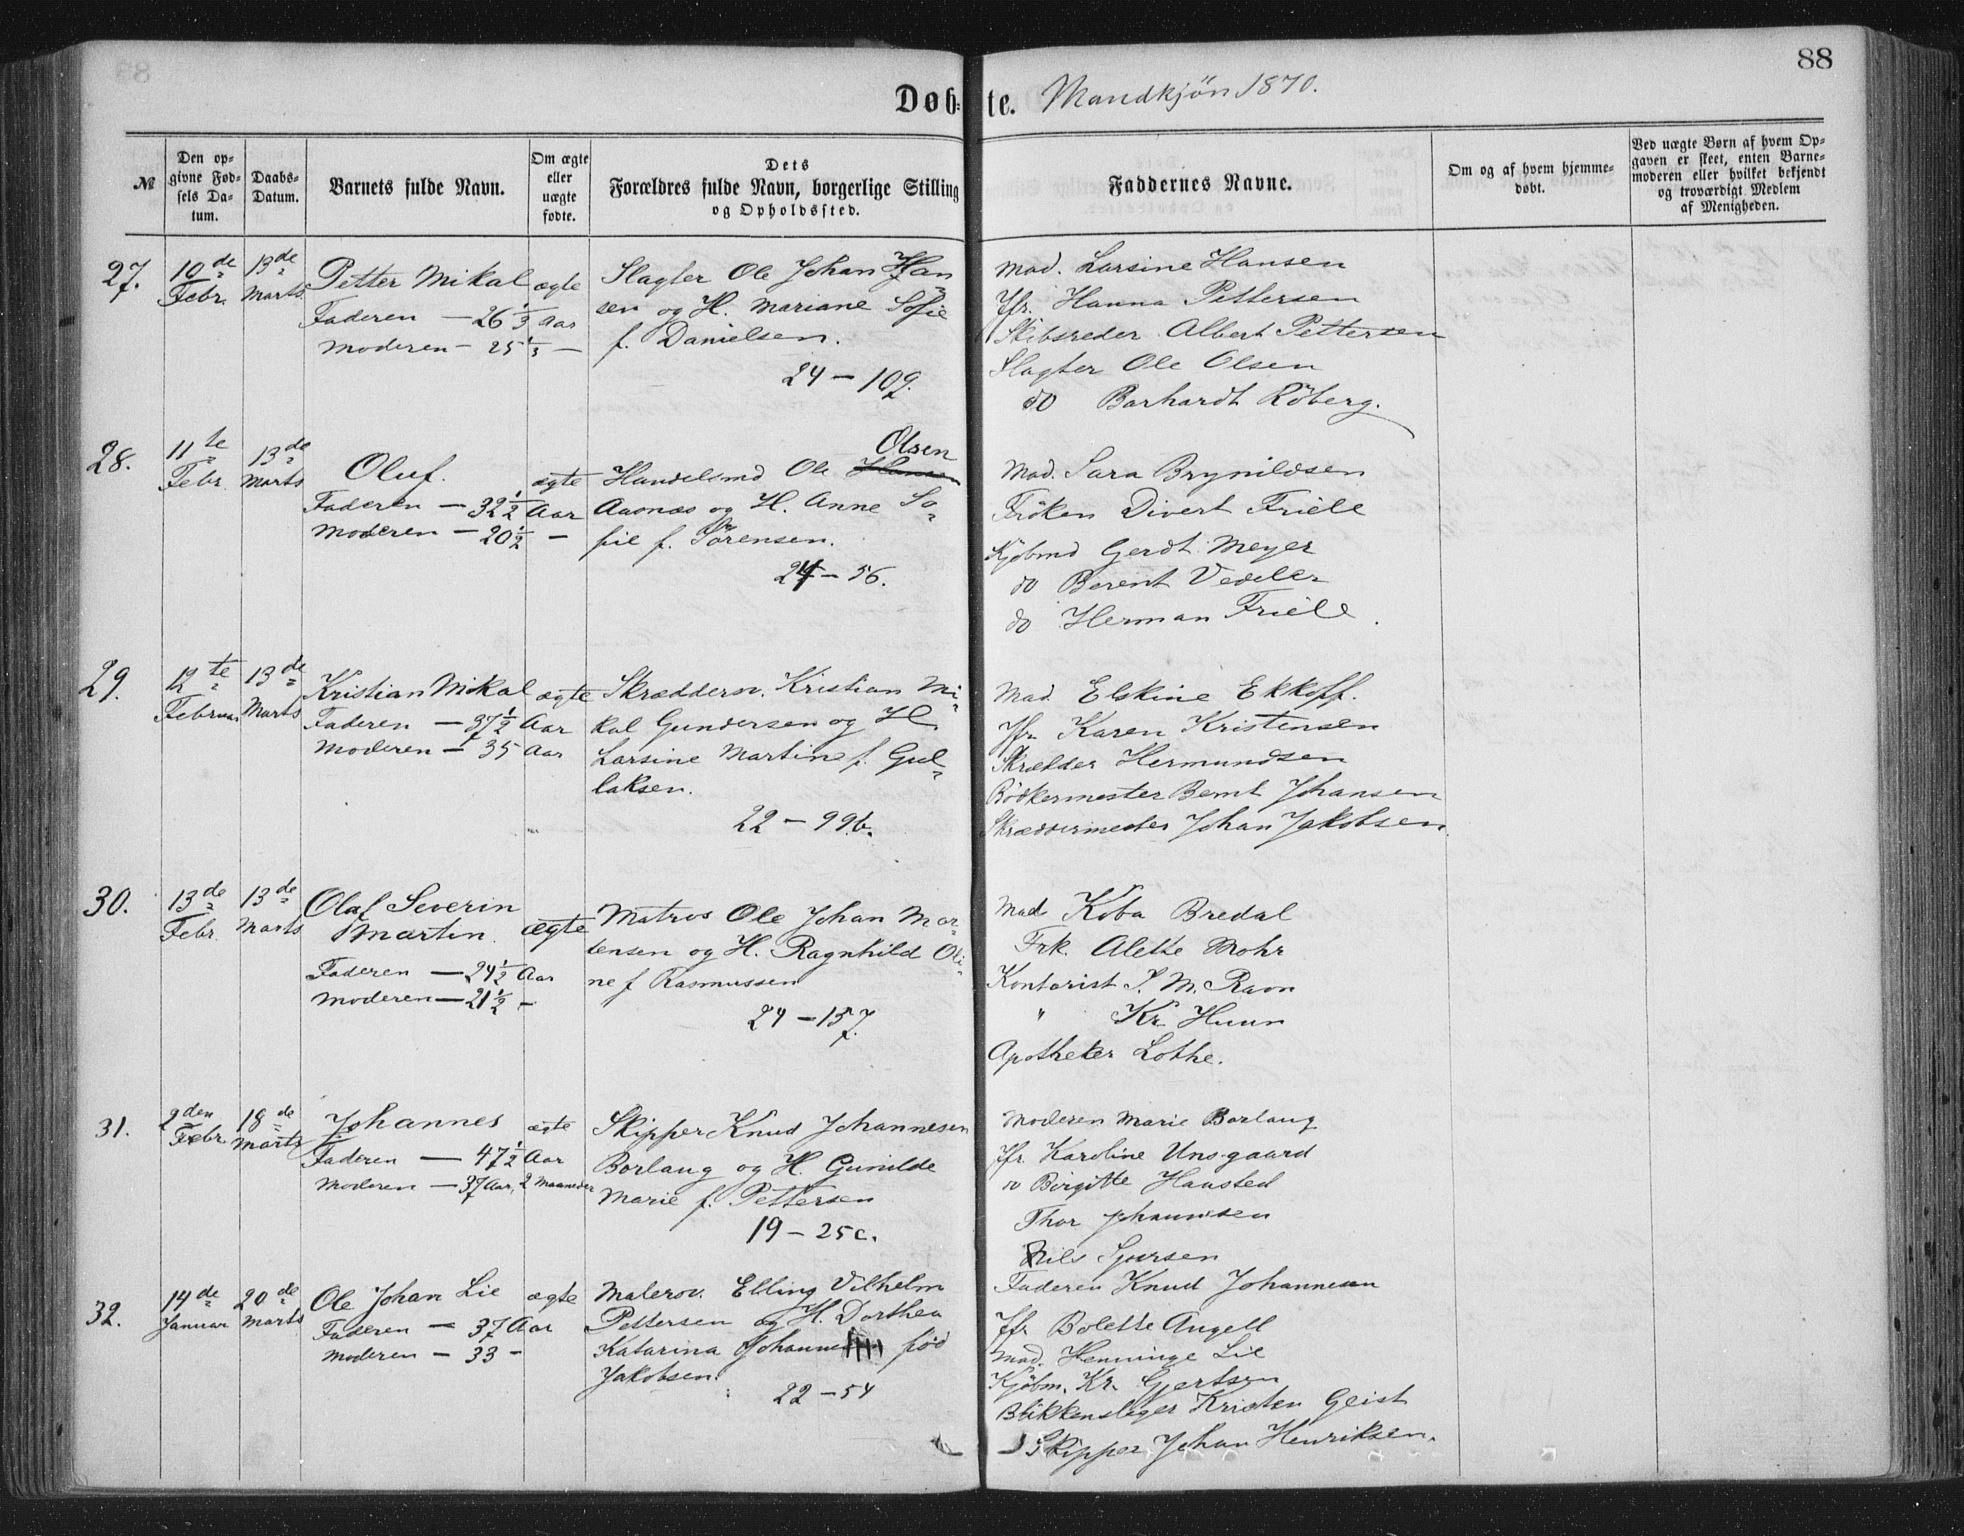 88
Døb- te. Mandkjön 1870.
№
Den op-
givne Fød-
sels Da-
tum.
Daabs-
Datum.
Barnets fulde Navn.
Om ægte
eller
uægte
fødte.
Dets
Forældres fulde Navn, borgerlige Stilling
og Opholdssted.
Faddernes Navne.
Om og af hvem hjemme-
døbt.
Ved uægte Børn af hvem Op-
gaven er skeet, enten Barne-
moderen eller hvilket bekjendt
og troværdigt Medlem
af Menigheden.
27.
10de
Febr.
13de
Marts
Petter Mikal
Faderen — 26 1/3 Aar
Moderen — 25 1/3 —
ægte
Slagter Ole Johan Han
sen og H. Mariane Sofie
f. Danielsen.
24 — 109.
Mad. Larsine Hansen
Jfr. Hanna Pettersen
Skibsreder Albert Pettersen
Slagter Ole Olsen
do Barhardt Röberg.
28.
11te
Febr.
13de
Marts
Oluf.
Faderen — 32 1/2 Aar
Moderen — 20 1/2 —
ægte
Olsen
Handelsmd Ole Hansen
Aasnæs og H. Anne So
fie f. Sörensen.
24 — 56.
Mad. Sara Brynildsen
Fröken Divert Friele
Kjöbmd Gerdt Meyer
do Berent Vedeler
do Herman Friele.
29.
12te
Februar
13de
Marts
Kristian Mikal
Faderen — 37 1/2 Aar
Moderen — 35 Aar
ægte
Skræddersv. Kristian Mi
kal Gundersen og H
Larsine Martine f. Gul
laksen.
22 — 99b.
Mad Elskine Ekkoff.
Jfr Karen Kristensen
Skrædder Hermundsen
Bödkermester Bernt Johansen
Skræddermester Johan Jakobsen.
30.
13de
Febr.
13de
Marts
Olaf Severin
Martin.
Faderen — 24 1/2 Aar
Moderen — 21 1/2 —
ægte
Matros Ole Johan Mor
tensen og H. Ragnhild Oli
ne f Rasmussen
24 — 157.
Mad Koba Bredal
Frk. Alette Mohr
Kontorist P. M. Ravn
" Kr. Huun
Apotheker Lothe.
31.
2den
Febr.
18de
Marts
Johannes
Faderen — 47 1/2 Aar
Moderen — 37 Aar, 2 Maaneder
ægte
Skipper Knud Johannesen
Borlaug og H. Gunilde
Marie f. Pettersen
19 — 25c.
Moderen Marie Borlaug
Jfr. Karoline Unsgaard
do Birgitte Hansted
Thor Johannesen
Nils Sjursen
Faderen Knud Johannesen
32.
14de
Januar
20de
Marts
Ole Johan Lie
Faderen — 37 Aar
Moderen — 33 —
ægte
Malersv. Elling Vilhelm
Pettersen og H. Dorthea
Katarina Johannesen föd
Jakobsen.
22 — 54
Jfr Bolette Angell
Mad. Henninge Lie
Kjöbm. Kr. Gjertsen
Blikkenslager Kristen Geist
Skipper Johan Henriksen.